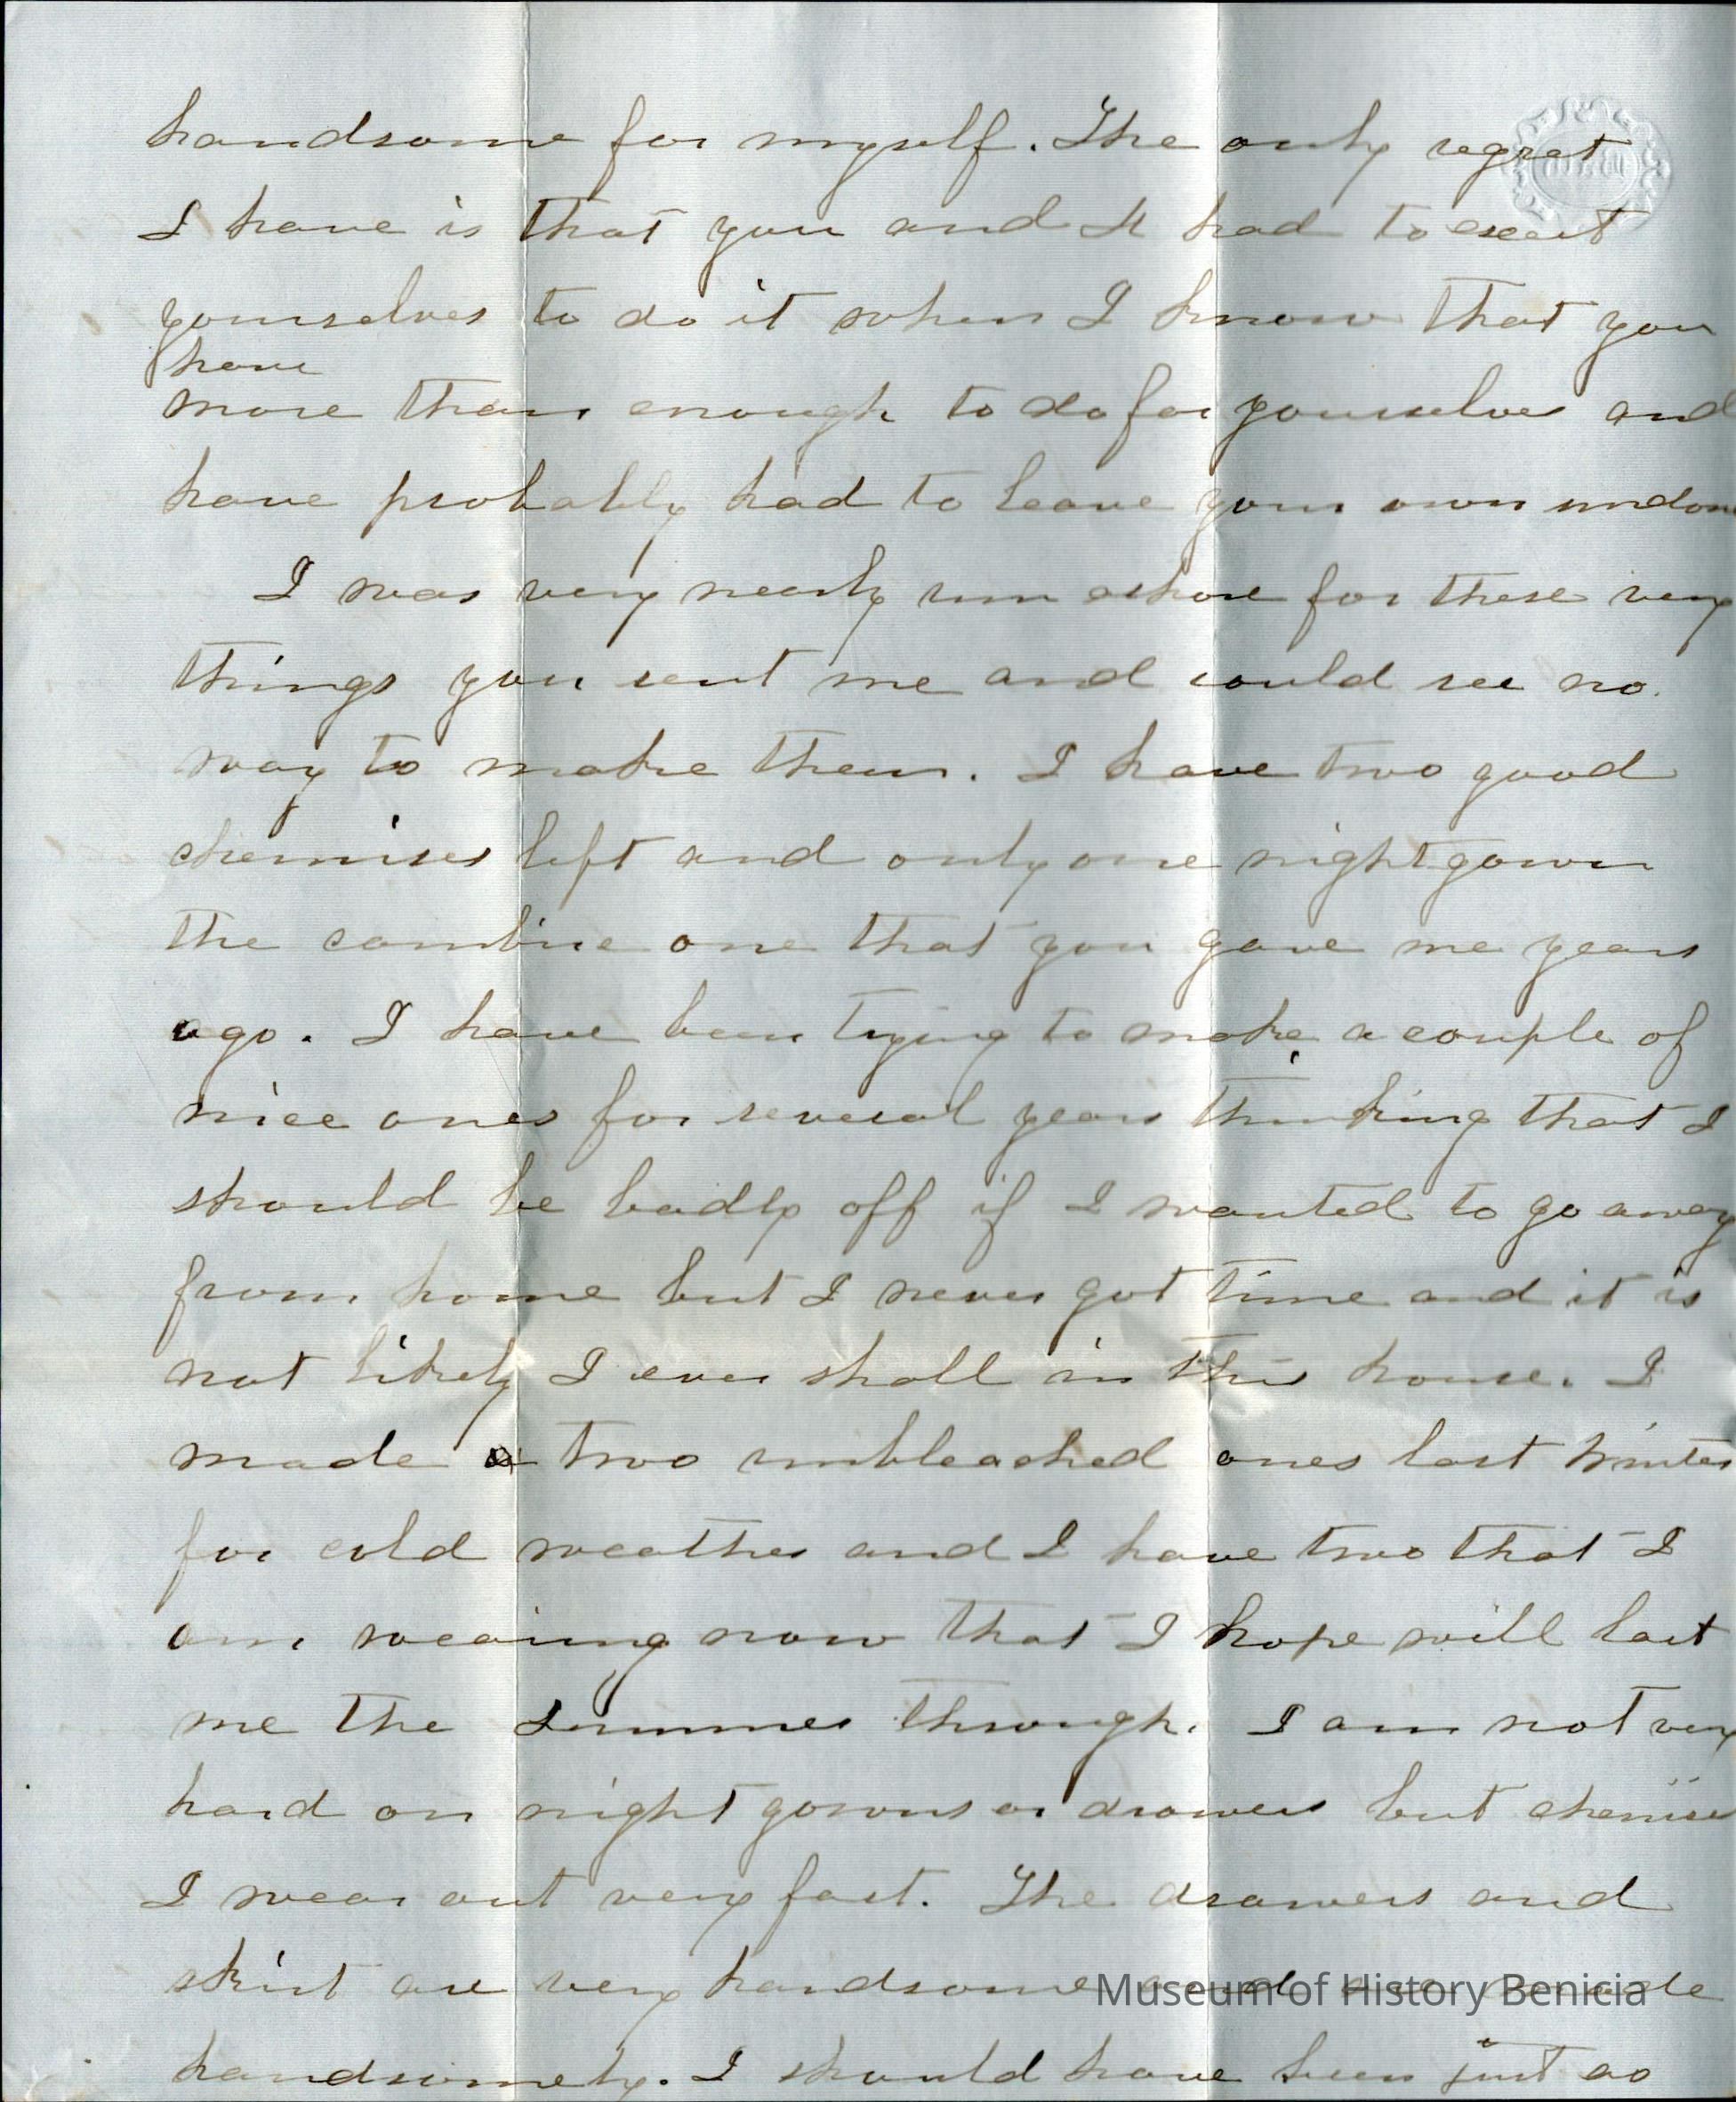 handsome for myself. The only regret
I have is that you and H had to exert
yourselves to do it when I know that you
have
more than enough to do for yourselves and
have probably had to leave your own undone
I was very nearly run ashore for these very
things you sent me and could see no
way to make them. I have two good
chemises left and only one nightgown
the cambric one that you gave me years
ago. I have been trying to make a couple of
nice ones for several years thinking that I
should be badly off if I wanted to go away
from home but I never got time and it is
not likely I ever shall in this house. I
made two unbleached ones last Winter
for cold weather and I have two that I
am wearing now that I hope will last
me the Summer through. I am not very
hard on night gowns or drawers but chemises
I wear out very fast. The drawers and
skirt are very handsome and are made
handsomely. I should have been just as
Museum of History Benicia